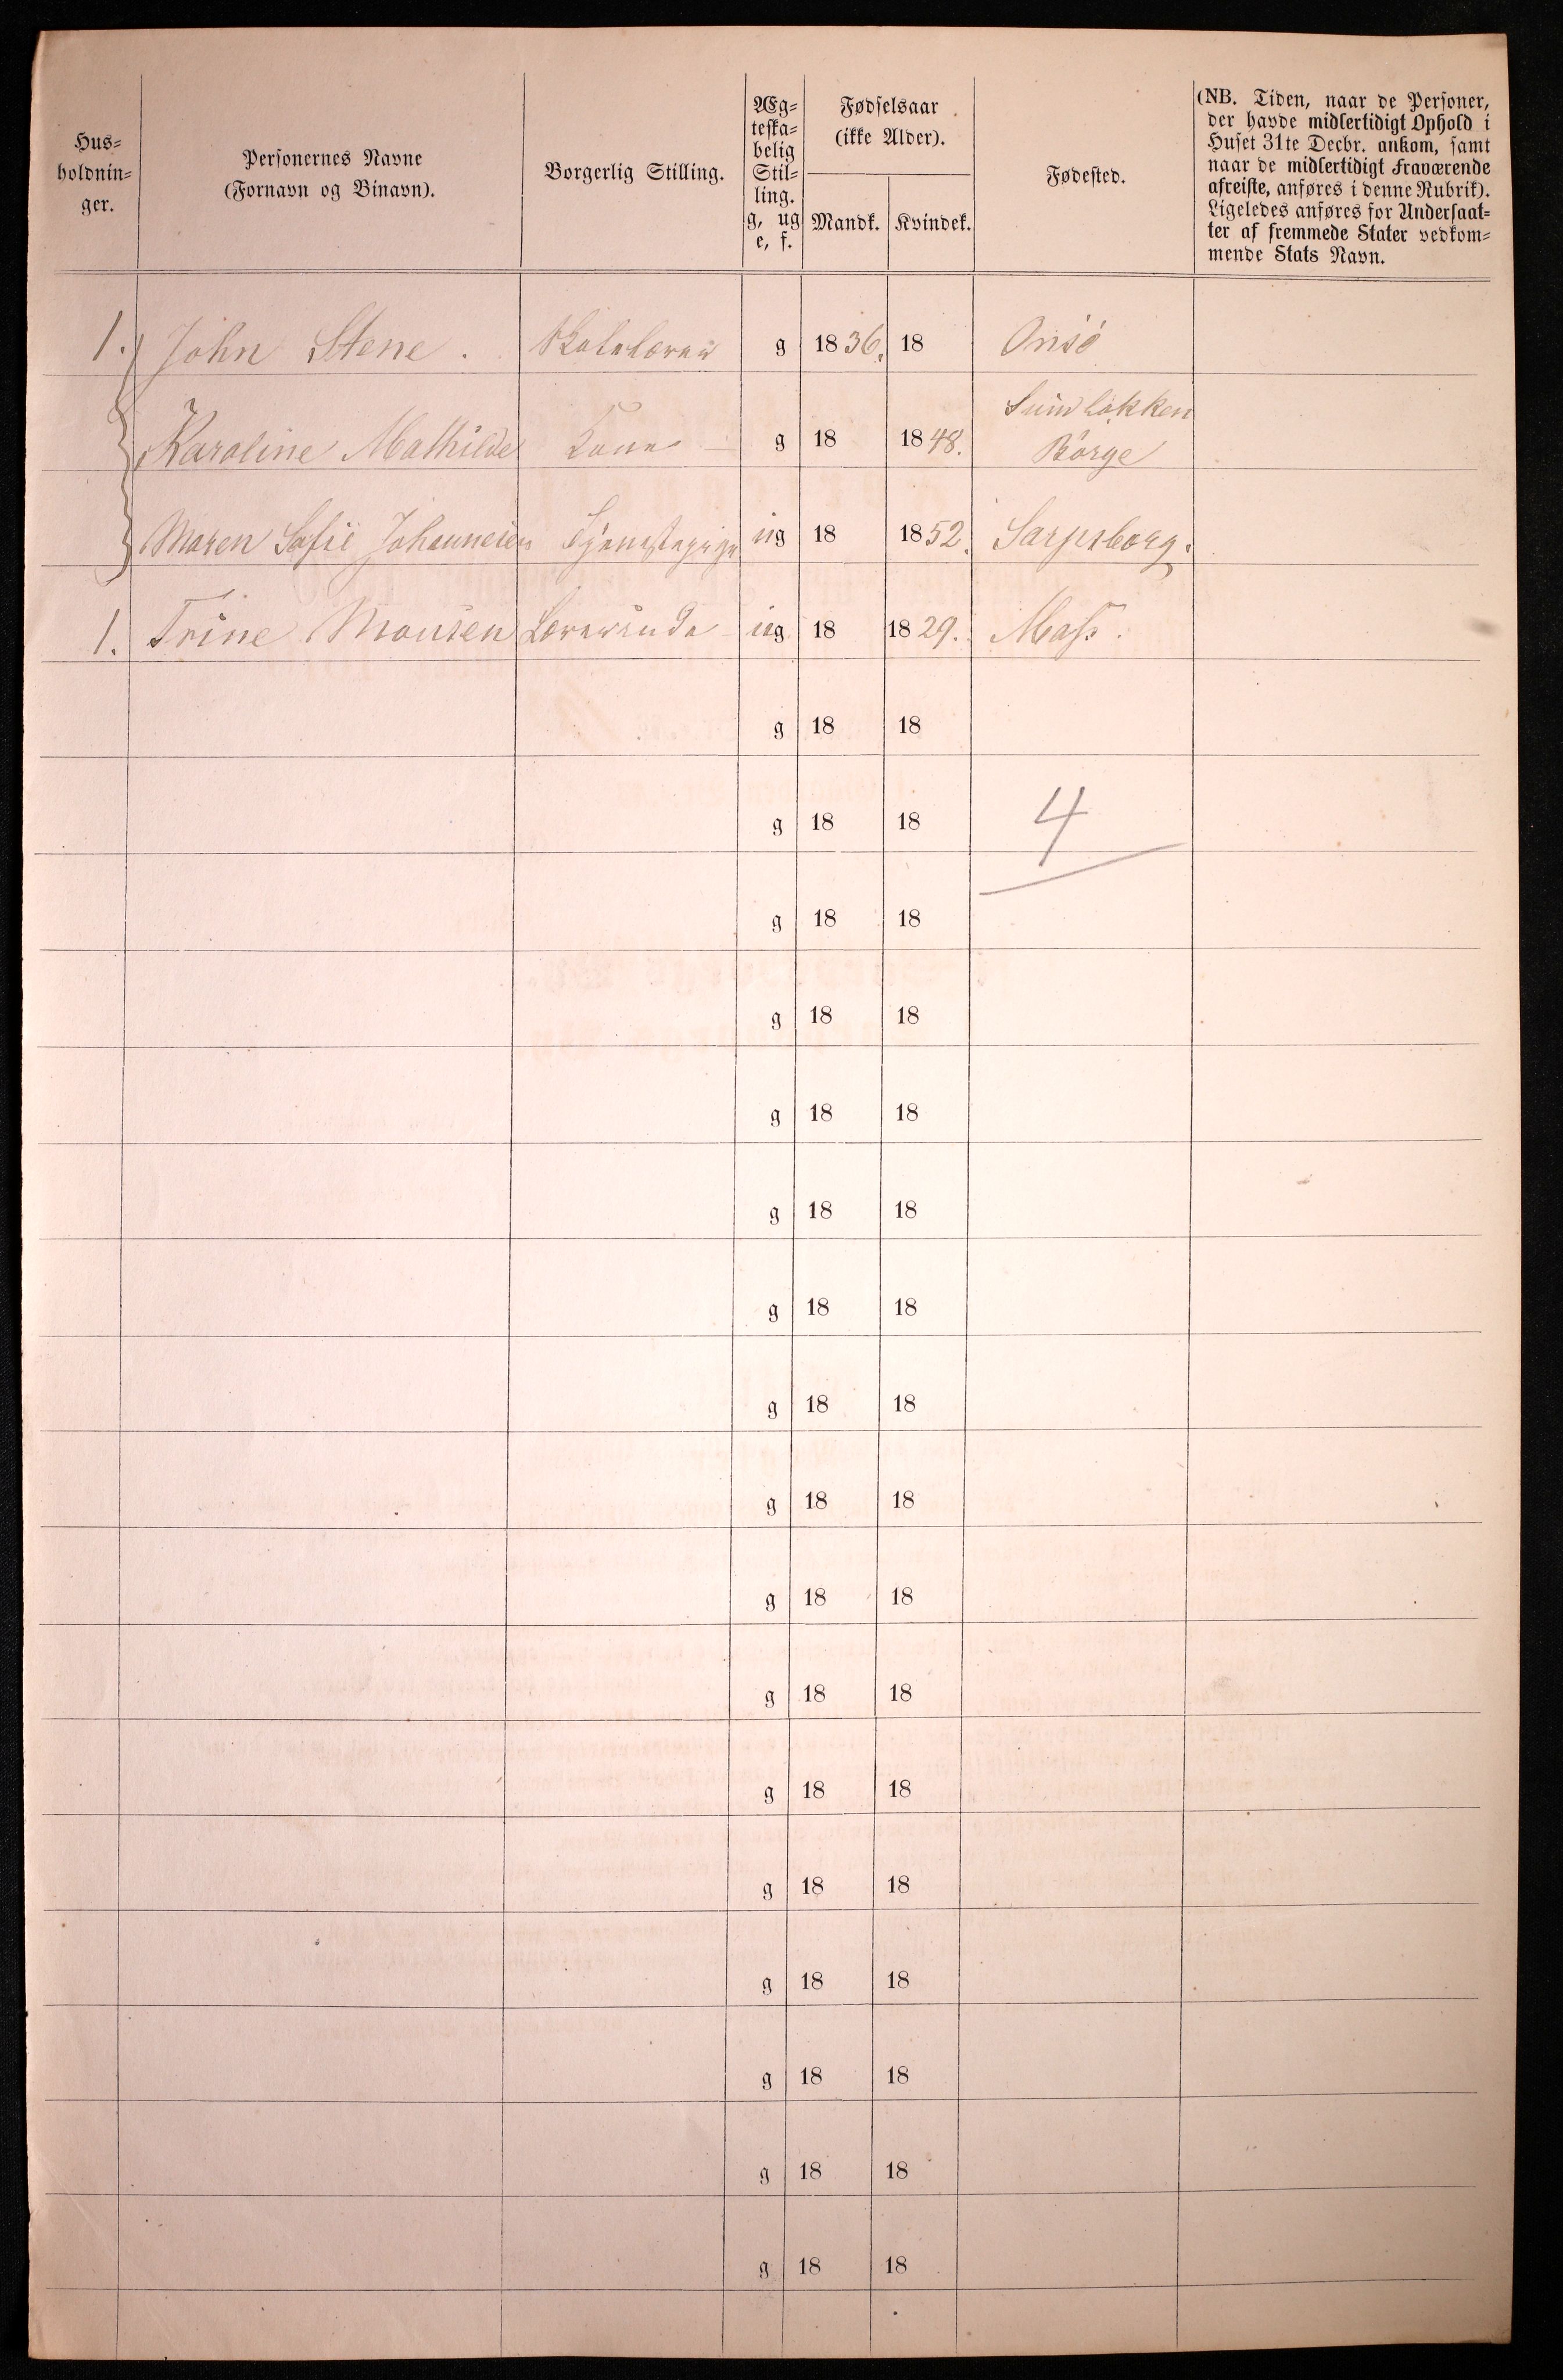 Hus-
holdnin-
ger.
Personernes Navne
(Fornavn og Binavn).
Borgerlig Stilling.
Æg-
teska-
belig
Stil-
ling.
g, ug
e, f.
Fødselsaar
(ikke Alder).
Mandk. Kvindek.
Fødested.
(NB. Tiden, naar de Personer,
der havde midlertidigt Ophold i
Huset 31te Decbr. ankom, samt
naar de midlertidigt Fraværende
afreiste, anføres i denne Rubrik).
Ligeledes anføres for Undersaat-
ter af fremmede Stater vedkom-
mende Stats Navn.
1. John Stene. Skolelærer g 1836. 18 Onsö
Karoline Mathilde Kone g 18 1848. Börge
Maren Sofie Johannesen Tjenestepige ug 18 1852. Sarpsborg.
1. Trine Monsen Lærerinde ug 18 1829. Moss.
g 18 18
g 18 18 4
g 18 18
g 18 18
g 18 18
g 18 18
g 18 18
g 18 18
g 18 18
g 18 18
g 18 18
g 18 18
g 18 18
g 18 18
g 18 18
g 18 18
g 18 18